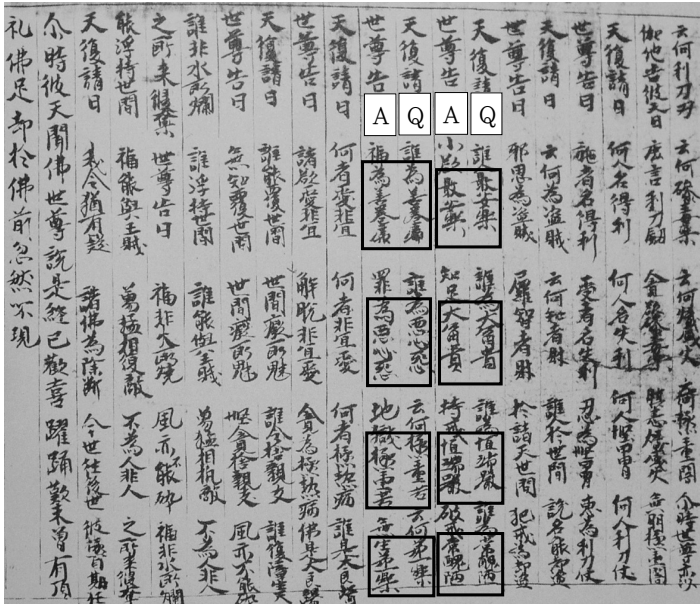 云何利刀刃 云何磣毒藥 云何熾盛火 云何極重暗 尒時世尊亦以
伽他告彼天曰 麁言利刀劒 貪欲磣毒藥 瞋恚熾盛火 无明極重闇
天復請曰 何人名得利 何人名失利 何人堅甲冑 何人利刀仗
世尊告曰 施者名得利 受者名失利 忍為堅甲冑 恵為利刀仗
天復請曰 云何為盜賊 云何知者財 誰人於世間 說名能劫盜
世尊告曰 邪思為盜賊 尸羅智者財 於諸天世間 犯戒為劫盜
天復請曰 誰人最安樂 誰為大富貴 誰為恒端嚴 誰為常醜陋
世尊告曰 小欲最安樂 知足大富貴 持戒恒端嚴 破戒常醜陋
天復請曰 誰為善眷屬 誰為惡心怨 云何極重苦 云何第一樂
世尊告曰 福為善眷屬 罪為惡心怨 地獄極重苦 无生第一樂
A Q A Q
天復請曰 何者愛非宜 何者非宜愛 何者極熱病 誰是大良醫
世尊告曰 諸欲愛非宜 解脫非宜愛 貪為極熱病 佛是大良醫
天復請曰 誰能覆世間 世間癡所魅 誰令捨親友 誰復障生天
世尊告曰 无知覆世間 世間癡所魅 慳貪捨親友
誰非水所爛 誰浮持世間 誰能與王賊 勇猛相抗敵 不為人非人
之所来侵奪 世尊告曰 福非火所燒 風亦不能碎 福非水所爛
能浮持世間 福能與王賊 勇猛相復敵 不為人非人 之所来侵奪
天復請曰 我今猶有疑 請佛為除斷 今世往後世
尒時彼天聞佛世尊說是經已歡喜躍踊歎未曾有頂
礼佛足却於佛前忽然不現